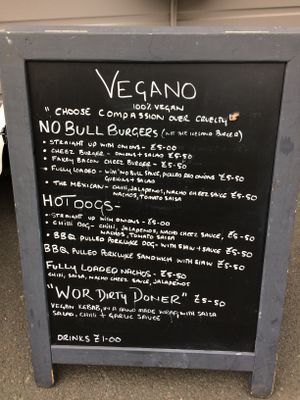 VEGANO
100% VEGAN
"CHOOSE COMPASSION OVER CRUELTY"
NO BULL BURGERS (NOT THE ICELAND BURGER)
• STRAIGHT UP WITH ONIONS - £5-00
• CHEEZ BURGER - ONIONS + SALAD £5-50
• FAKEY BACON CHEEZ BURGER - £5-50
• FULLY LOADED - W/M 'NO BULL SAUCE, PICKLED RED ONIONS £5-50
GHERKINS + SALAD
• THE MEXICAN - CHILLI, JALAPENOS, NACHO CHEEZ SAUCE £5-50
NACHOS, TOMATO SALSA
HOTDOGS-
• STRAIGHT UP WITH ONIONS - £5-00
• CHILLI DOG - CHILLI, JALAPENOS, NACHO CHEEZ SAUCE £5-50
NACHOS, TOMATO SALSA
• BBQ PULLED PORKLYKE DOG - WITH SLAW + SAUCE £5-50
BBQ PULLED PORKLYKE SANDWICH WITH SLAW £5-50
FULLY LOADED NACHOS - £5-50
CHILLI, SALSA, NACHO CHEEZ SAUCE, JALAPENOS
"WOR DIRTY DONER" £5-50
VEGAN KEBAB, IN A HAND MADE WRAP, WITH SALSA
SALAD, CHILLI + GARLIC SAUCE
DRINKS £1-00